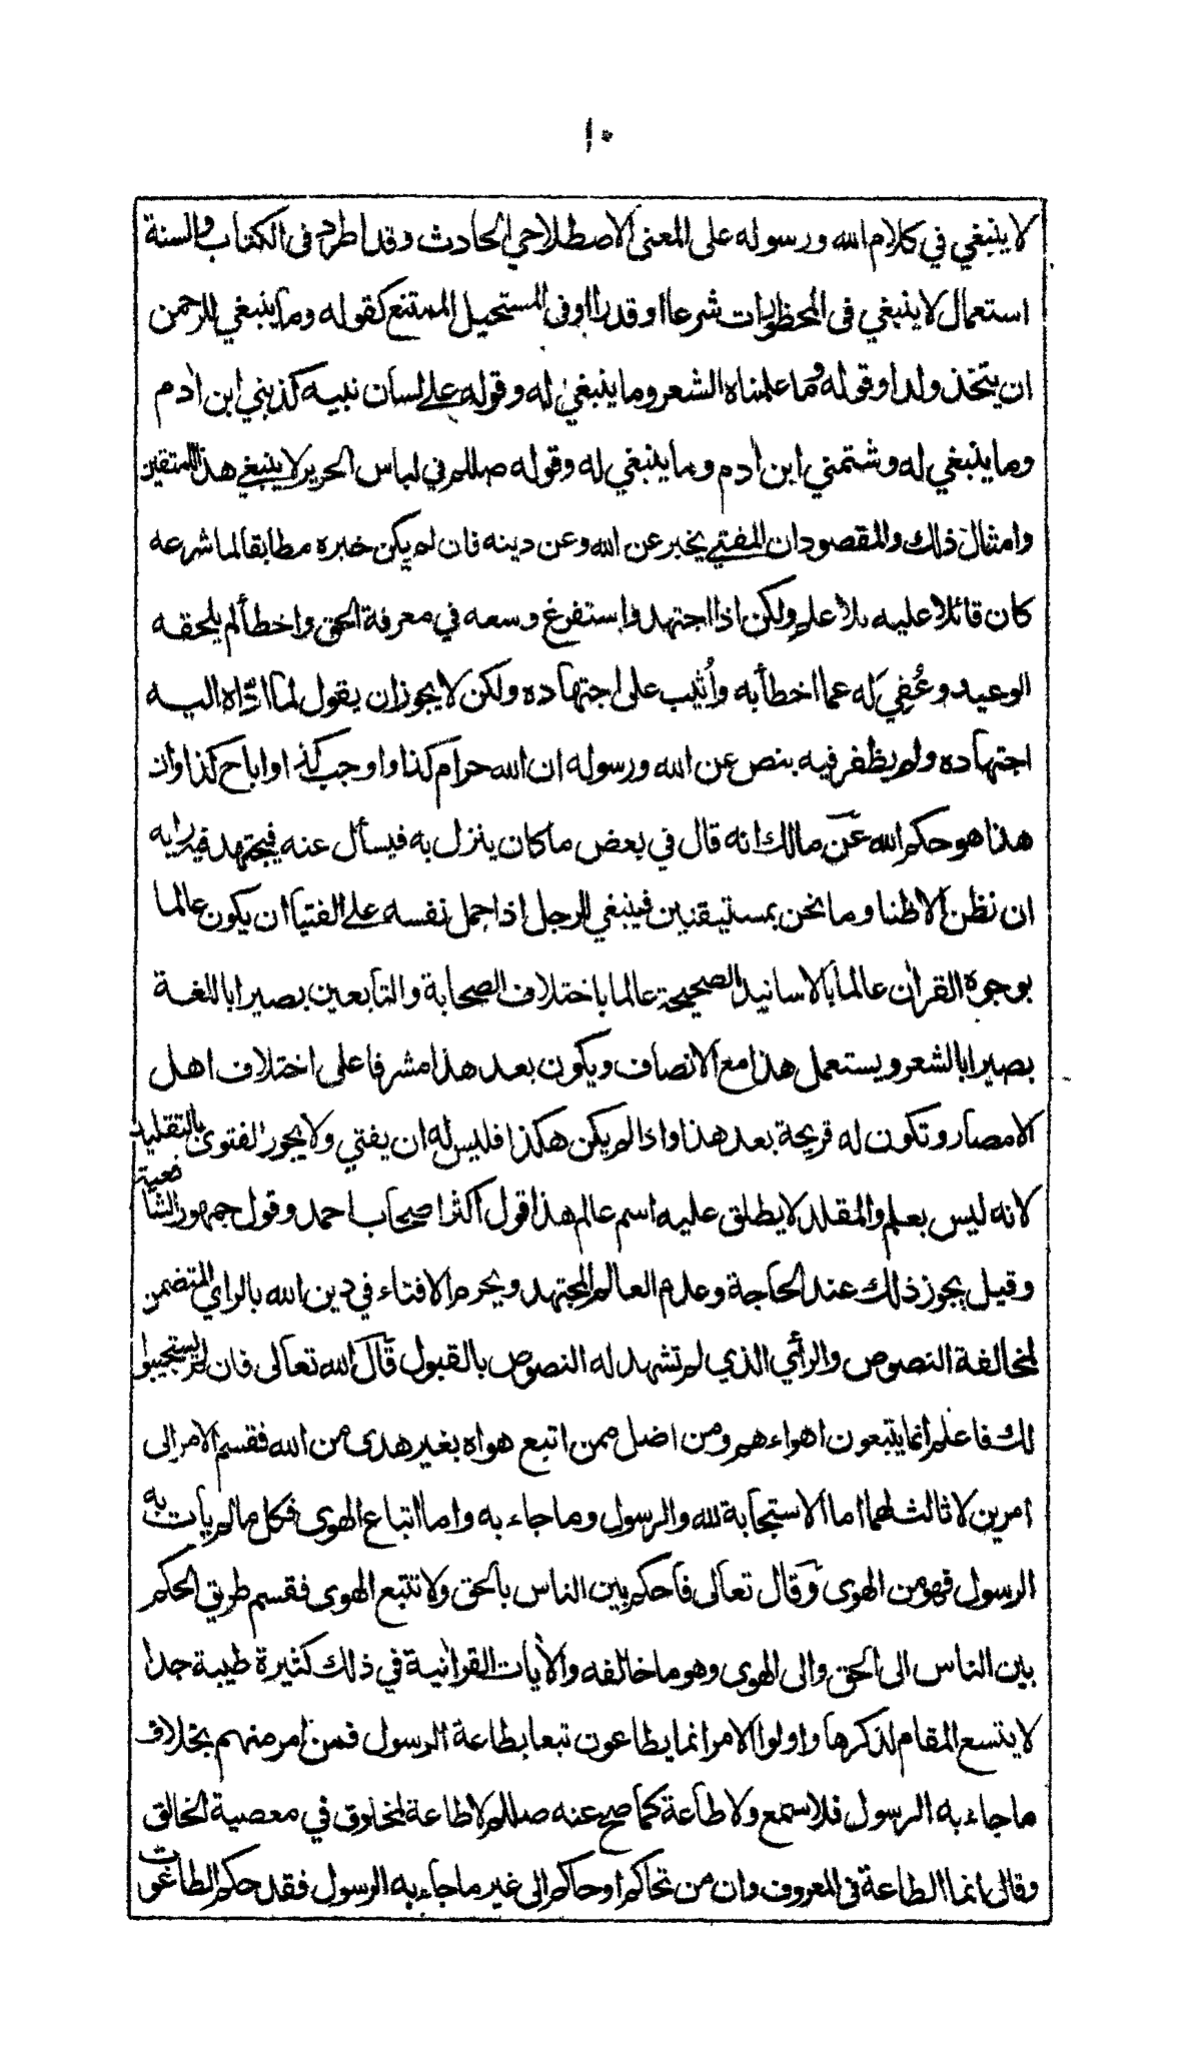 ١٠
لا ينبغي في كلام الله ورسوله على المعنى الاصطلاحي الحادث وقد اطرد فى الكتاب والسنة
استعمال لا ينبغي فى المحظورات شرعا او قدرا او فى المستحيل الممتنع كقوله وما ينبغي للرحمن
ان يتخذ ولدا وقوله وما علمناه الشعر وما ينبغي له وقوله على لسان نبيه كذبني ابن ادم
وما ينبغي له وشتمني ابن ادم وما ينبغي له وقوله صللم في لباس الحرير لا ينبغي هذا للمتقين
وامثال ذلك والمقصود ان المفتي يخبر عن الله وعن دينه فان لم يكن خبره مطابقا لما شرعه
كان قائلا عليه بلا علم ولكن اذا اجتهد واستفرغ وسعه في معرفة الحق واخطأ لم يلحقه
الوعيد وعُفِيَ له عما اخطأ به وأُثيب على اجتهاده ولكن لا يجوز ان يقول لما ادّاه اليه
اجتهاده ولم يظفر فيه بنص عن الله ورسوله ان الله حرام كذا واوجب كذا او اباح كذا وان
هذا هو حكم الله عن مالك انه قال في بعض ما كان ينزل به فيسأل عنه فيجتهد فيه رايه
ان نظن الا ظنا وما نحن بمستيقنين فينبغي للرجل اذا حمل نفسه على الفتيا ان يكون عالما
بوجوه القران عالما بالاسانيد الصحيحة عالما باختلاف الصحابة والتابعين بصيرا باللغة
بصيرا بالشعر ويستعمل هذا مع الانصاف ويكون بعد هذا مشرفا على اختلاف اهل
الامصار وتكون له قريحة بعد هذا واذا لم يكن هكذا فليس له ان يفتي ولا يجوز الفتوى بالتقليد
لانه ليس بعلم والمقلد لا يطلق عليه اسم عالم هذا قول اكثر اصحاب احمد وقول جمهور الشافعية
وقيل يجوز ذلك عند الحاجة وعدم العالم المجتهد ويحرم الافتاء في دين الله بالراي المتضمن
لمخالفة النصوص والرأي الذي لم تشهد له النصوص بالقبول قال الله تعالى فان لم يستجيبوا
لك فاعلم انما يتبعون اهواءهم ومن اضل ممن اتبع هواه بغير هدى من الله فقسم الامر الى
امرين لا ثالث لهما اما الاستجابة لله والرسول وما جاء به واما اتباع الهوى فكل ما لم يات به
الرسول فهو من الهوى وقال تعالى فاحكم بين الناس بالحق ولا تتبع الهوى فقسم طريق الحكم
بين الناس الى الحق والى الهوى وهو ما خالفه والأيات القرانية في ذلك كثيرة طيبة جدا
لا يتسع المقام لذكرها واولوا الامر انما يطاعون تبعا بطاعة الرسول فمن امر منهم بخلاف
ما جاء به الرسول فلا سمع ولا طاعة كما صح عنه صللم لا طاعة لمخلوق في معصية الخالق
وقال انما الطاعة فى المعروف وان من تحاكم او حاكم الى غير ما جاء به الرسول فقد حكم الطاغوت